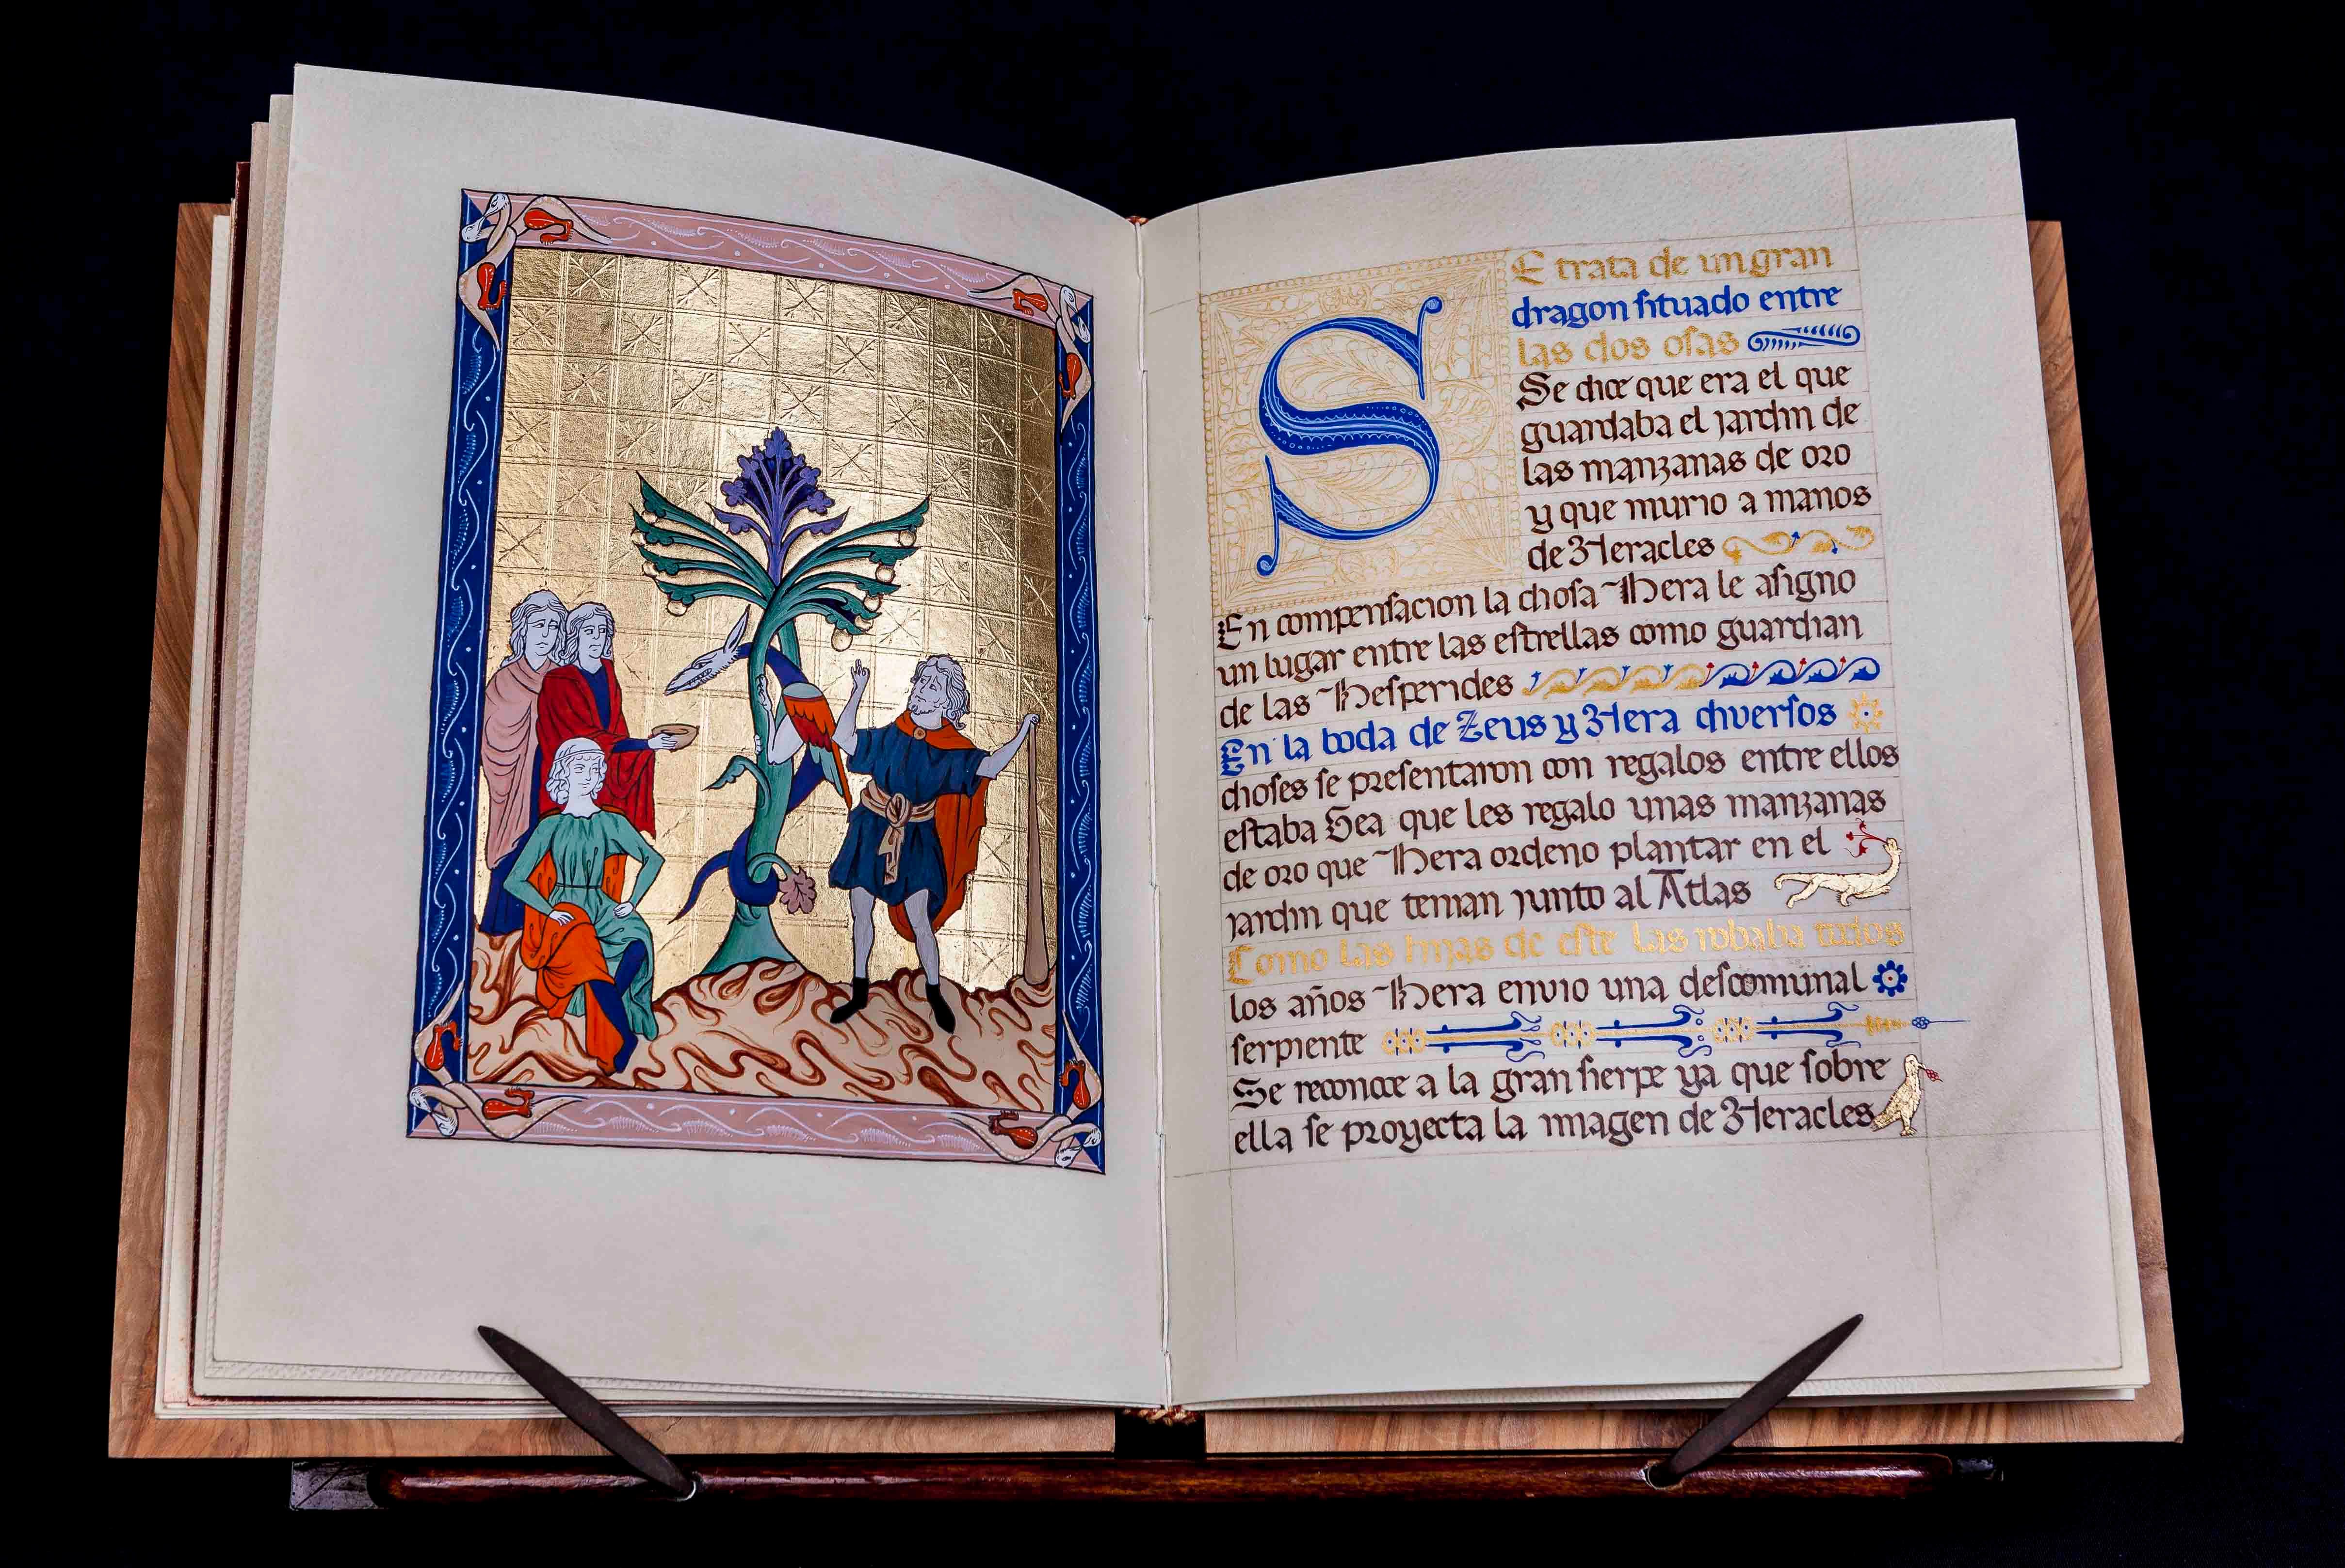 SE trata de un gran
dragon situado entre
las dos osas
Se dice que era el que
guardaba el jardin de
las manzanas de oro
y que murio a manos
de Heracles
En compensacion la diosa Hera le asigno
un lugar entre las estrellas como guardian
de las Hesperides
En la boda de Zeus y Hera diversos
dioses se presentaron con regalos entre ellos
estaba Gea que les regalo unas manzanas
de oro que Hera ordeno plantar en el
jardin que tenian junto al Atlas
Como las hijas de este las robaba todos
los años Hera envio una descomunal
serpiente
Se reconoce a la gran sierpe ya que sobre
ella se proyecta la imagen de Heracles